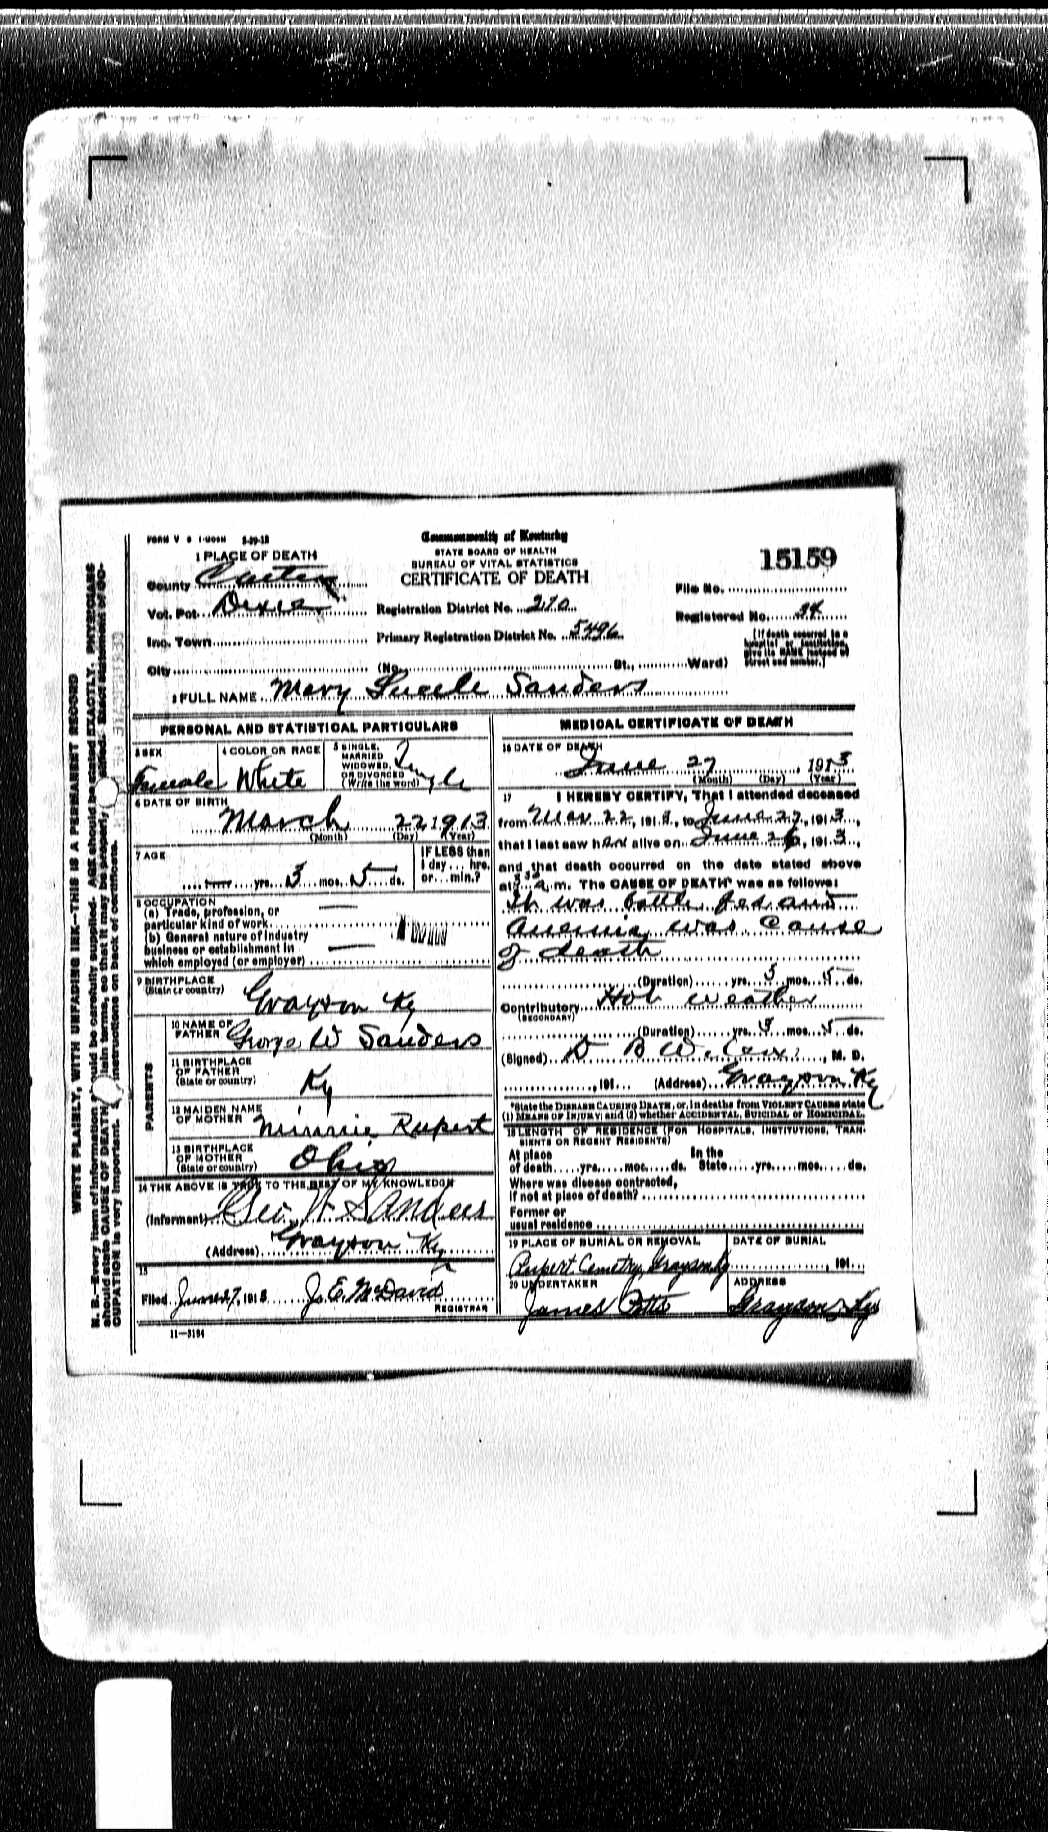 1 PLACE OF DEATH
County Carter
Vot. Pct. Dixie
Inc. Town
City (No. St., Ward)
Commonwealth of Kentucky
STATE BOARD OF HEALTH
BUREAU OF VITAL STATISTICS
CERTIFICATE OF DEATH
Registration District No. 270
Primary Registration District No. 5496
15159
File No.
Registered No. 34
(If death occurred in a
hospital or institution
give its NAME instead of
street and number.)
2 FULL NAME Mary Lucele Sanders
PERSONAL AND STATISTICAL PARTICULARS
3 SEX
Female
4 COLOR OR RACE
White
5 SINGLE,
MARRIED
WIDOWED,
OR DIVORCED
(Write the word)
Single
6 DATE OF BIRTH
March 22 1913
(Month) (Day) (Year)
7 AGE
yrs. 3 mos. 5 ds.
IF LESS than
1 day ... hrs.
or ... min.?
8 OCCUPATION
(a) Trade, profession, or
particular kind of work
(b) General nature of industry
business or establishment in
which employed (or employer)
9 BIRTHPLACE
(State or country)
Grayson Ky
PARENTS
10 NAME OF
FATHER
George W Sanders
11 BIRTHPLACE
OF FATHER
(State or country)
Ky
12 MAIDEN NAME
OF MOTHER
Minnie Rupert
13 BIRTHPLACE
OF MOTHER
(State or country)
Ohio
14 THE ABOVE IS TRUE TO THE BEST OF MY KNOWLEDGE
(Informant) Geo W Sanders
(Address) Grayson Ky
15
Filed June 27, 1913 J. E. McDavid
REGISTRAR
11—3184
MEDICAL CERTIFICATE OF DEATH
16 DATE OF DEATH
June 27, 1913
(Month) (Day) (Year)
17 I HEREBY CERTIFY, That I attended deceased
from Mar 22, 1913, to June 27, 1913,
that I last saw her alive on June 26, 1913,
and that death occurred on the date stated above
at a.m. The CAUSE OF DEATH* was as follows:
It was bottle fed and
Anemia was Cause
of death
(Duration) yrs. 3 mos. 5 ds.
Contributory Hot weather
(SECONDARY)
(Duration) yrs. 3 mos. 5 ds.
(Signed) D B Wilcox, M. D.
191 (Address) Grayson Ky
*State the DISEASE CAUSING DEATH, or, in deaths from VIOLENT CAUSES state
(1) MEANS OF INJURY; and (2) whether ACCIDENTAL, SUICIDAL or HOMICIDAL.
18 LENGTH OF RESIDENCE (FOR HOSPITALS, INSTITUTIONS, TRAN-
SIENTS OR RECENT RESIDENTS)
At place In the
of death yrs. mos. ds. State yrs. mos. ds.
Where was disease contracted,
if not at place of death?
Former or
usual residence
19 PLACE OF BURIAL OR REMOVAL
Rupert Cemetry, Grayson Ky
DATE OF BURIAL
, 191
20 UNDERTAKER
James Potts
ADDRESS
Grayson Ky
WRITE PLAINLY, WITH UNFADING INK—THIS IS A PERMANENT RECORD